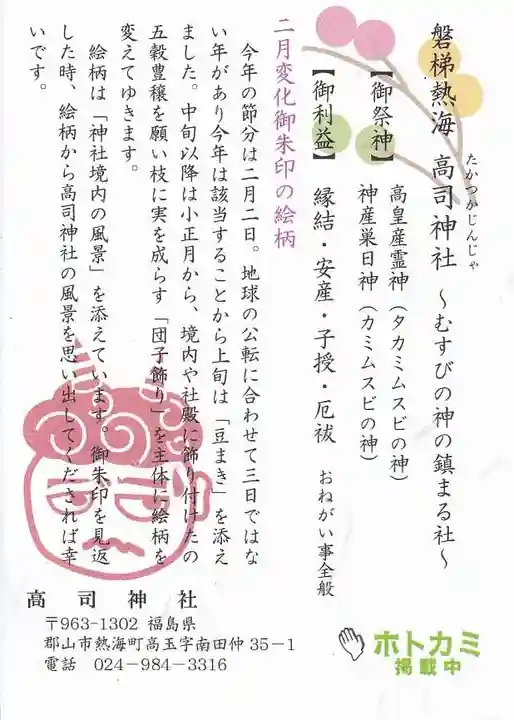 磐梯熱海 高司神社 ～むすびの神の鎮まる社～
たかつかじんじゃ
【御祭神】 高皇産霊神（タカミムスビの神）
神産巣日神（カミムスビの神）
【御利益】 縁結・安産・子授・厄祓 おねがい事全般
二月変化御朱印の絵柄
今年の節分は二月二日。地球の公転に合わせて三日ではな
い年があり今年は該当することから上旬は「豆まき」を添え
ました。中旬以降は小正月から、境内や社殿に飾り付けたの
五穀豊穣を願い枝に実を成らす「団子飾り」を主体に絵柄を
変えてゆきます。
絵柄は「神社境内の風景」を添えています。御朱印を見返
した時、絵柄から高司神社の風景を思い出してくだされば幸
いです。
高司神社
〒963-1302 福島県
郡山市熱海町高玉字南田仲 35－1
電話 024-984-3316
ホトカミ
掲載中